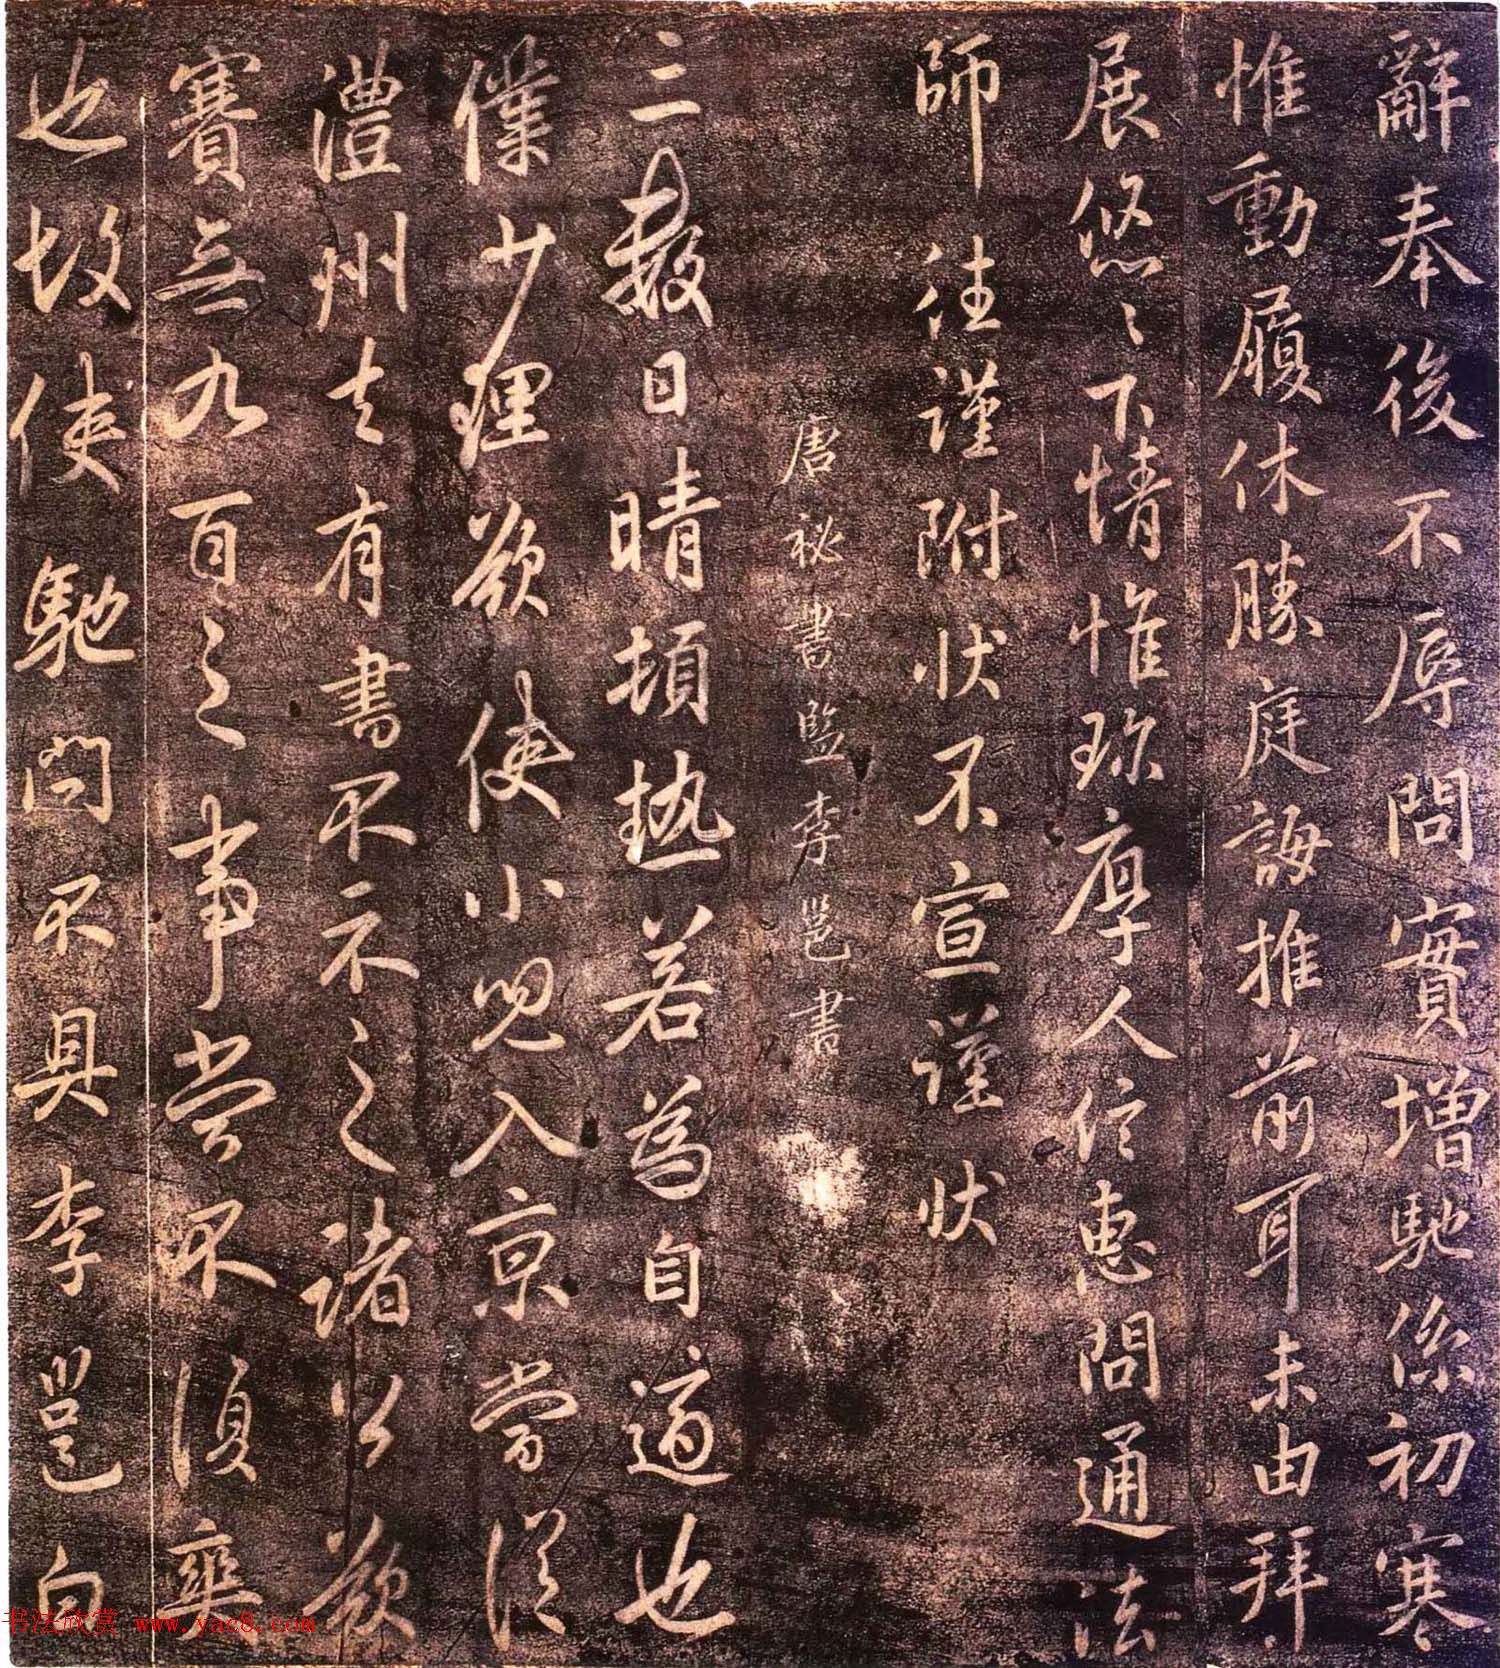 辭奉後不辱問實增馳係初寒
惟動履休勝庭誨推前耳未由拜
展悠々下情惟珎厚人信惠問通法
師往謹附狀不宣謹狀
唐祕書監李邕書
三數日晴頓熱若為自適也
僕少理欲使小兒入京當從
澧州去有書不示之諸公欲
賽無九百之事嘗不須奭
也故使馳問不具李邕白
书法欣赏 www.yac8.com